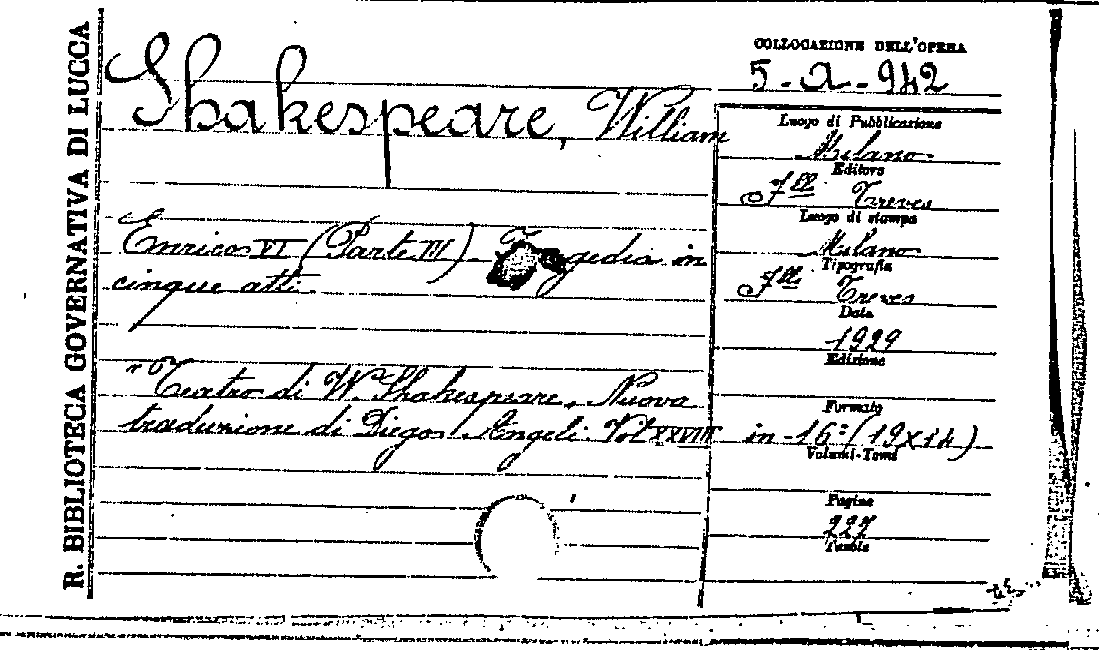 R. BIBLIOTECA GOVERNATIVA DI LUCCA
Shakespeare, William
Enrico VI (Parte III). Tragedia in
cinque atti.
"Teatro di W. Shakespeare. Nuova
traduzione di Diego Angeli. Vol XXVIII
COLLOCAZIONE DELL'OPERA
5-a-942
Luogo di Pubblicazione
Milano
Editore
F.lli Treves
Luogo di stampa
Milano
Tipografia
F.lli Treves
Data
1929
Edizione
Formato
in-16º (19x14)
Volumi-Tomi
Pagine
227
Tavole